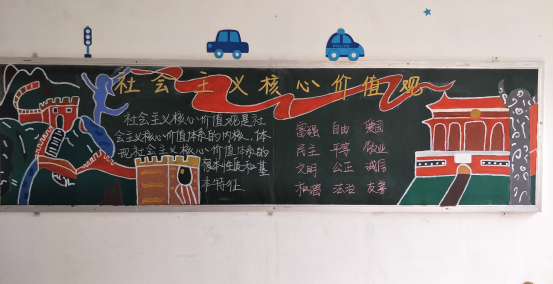 社会主义核心价值观
社会主义核心价值观是社
会主义核心价值体系的内核，体
现社会主义核心价值体系的
根本性质和基
本特征.
富强 自由 爱国
民主 平等 敬业
文明 公正 诚信
和谐 法治 友善